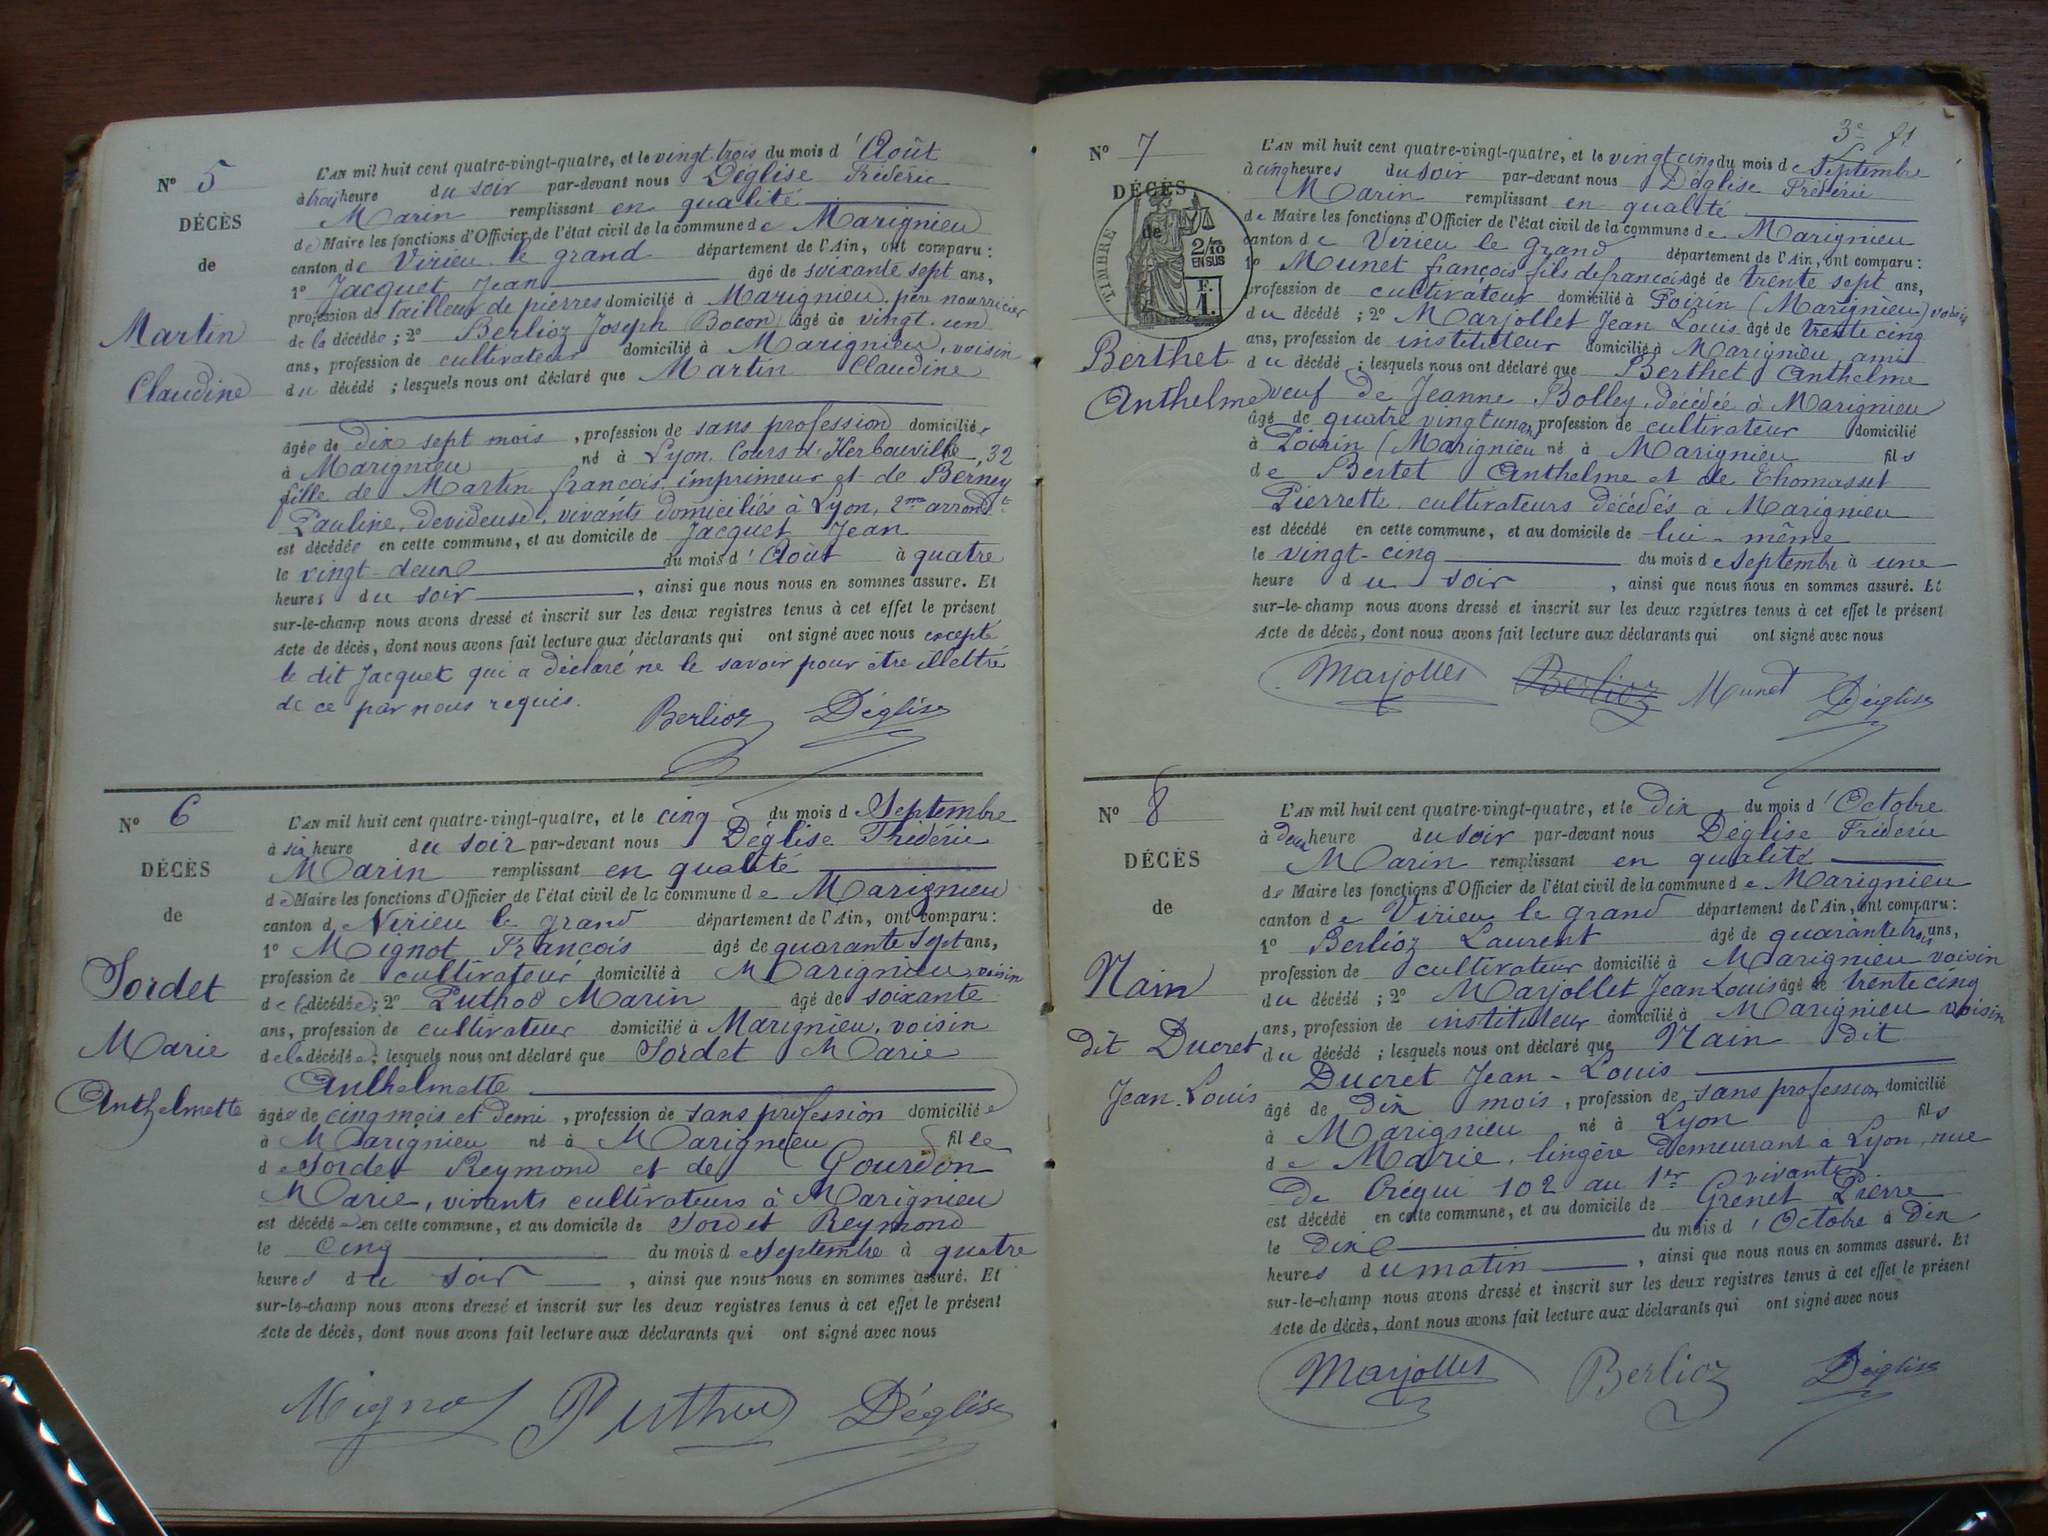 N° 5
DÉCÈS
de
Martin
Claudine
L'AN mil huit cent quatre-vingt-quatre, et le vingt-trois du mois d'Août
à trois heure du soir par-devant nous Déglise Fréderic
Marin remplissant en qualité
de Maire les fonctions d'Officier de l'état civil de la commune de Marignieu
canton de Virieu le grand département de l'Ain, ont comparu :
1° Jacquet Jean âgé de soixante sept ans,
profession de tailleur de pierres domicilié à Marignieu, père nourricier
de la décédée ; 2° Berlioz Joseph Bocon âgé de vingt-un
ans, profession de cultivateur domicilié à Marignieu, voisin
du décédé ; lesquels nous ont déclaré que Martin Claudine
âgée de dix sept mois, profession de sans profession domiciliée
à Marignieu né à Lyon, Cours d'Herbouville, 32
fille de Martin françois, imprimeur et de Berney
Pauline, devideuse, vivants domiciliés à Lyon, 2me arrondt
est décédée en cette commune, et au domicile de Jacquet Jean
le vingt-deux du mois d'Août à quatre
heures du soir, ainsi que nous nous en sommes assuré. Et
sur-le-champ nous avons dressé et inscrit sur les deux registres tenus à cet effet le présent
Acte de décès, dont nous avons fait lecture aux déclarants qui ont signé avec nous excepté
le dit Jacquet qui a déclaré ne le savoir pour être illettré
de ce par nous requis.
Berlioz Déglise
N° 6
DÉCÈS
de
Sordet
Marie
Anthelmette
L'AN mil huit cent quatre-vingt-quatre, et le cinq du mois d Septembre
à six heure du soir par-devant nous Déglise Fréderic
Marin remplissant en qualité
de Maire les fonctions d'Officier de l'état civil de la commune de Marignieu
canton d Virieu le grand département de l'Ain, ont comparu :
1° Mignot François âgé de quarante sept ans,
profession de cultivateur domicilié à Marignieu, voisin
de la décédée ; 2° Puthod Marin âgé de soixante
ans, profession de cultivateur domicilié à Marignieu, voisin
de la décédée ; lesquels nous ont déclaré que Sordet Marie
Anthelmette
âgée de cinq mois et demi, profession de sans profession domiciliée
à Marignieu né à Marignieu fille
de Sordet Reymond et de Gourdon
Marie, vivants cultivateurs à Marignieu
est décédée en cette commune, et au domicile de Sordet Reymond
le cinq du mois de septembre à quatre
heures du soir, ainsi que nous nous en sommes assuré. Et
sur-le-champ nous avons dressé et inscrit sur les deux registres tenus à cet effet le présent
Acte de décès, dont nous avons fait lecture aux déclarants qui ont signé avec nous
Mignot Puthod Déglise
3e 81
N° 7
DÉCÈS
de
TIMBRE
2/10 EN SUS
F. 1.
Berthet
Anthelme
L'AN mil huit cent quatre-vingt-quatre, et le vingt cinq du mois de Septembre
à cinq heures du soir par-devant nous Déglise Fréderic
Marin remplissant en qualité
de Maire les fonctions d'Officier de l'état civil de la commune de Marignieu
canton de Virieu le grand département de l'Ain, ont comparu :
1° Munet françois fils de francois âgé de trente sept ans,
profession de cultivateur domicilié à Poirin (Marignieu) voisin
du décédé ; 2° Marjollet Jean Louis âgé de trente cinq
ans, profession de instituteur domicilié à Marignieu, ami
du décédé ; lesquels nous ont déclaré que Berthet Anthelme
veuf de Jeanne Bolley, décédée à Marignieu
âgé de quatre vingt un ans, profession de cultivateur domicilié
à Poirin (Marignieu né à Marignieu fils
de Bertet Anthelme et de Thomasset
Pierrette, cultivateurs décédés à Marignieu
est décédé en cette commune, et au domicile de lui-même
le vingt-cinq du mois de septembre à une
heure du soir, ainsi que nous nous en sommes assuré. Et
sur-le-champ nous avons dressé et inscrit sur les deux registres tenus à cet effet le présent
Acte de décès, dont nous avons fait lecture aux déclarants qui ont signé avec nous
Marjollet Berlioz Munet Déglise
N° 8
DÉCÈS
de
Nain
dit Ducret
Jean-Louis
L'AN mil huit cent quatre-vingt-quatre, et le dix du mois d'Octobre
à deux heure du soir par-devant nous Déglise Fréderic
Marin remplissant en qualité
de Maire les fonctions d'Officier de l'état civil de la commune de Marignieu
canton de Virieu le grand département de l'Ain, ont comparu :
1° Berlioz Laurent âgé de quarante trois ans,
profession de cultivateur domicilié à Marignieu voisin
du décédé ; 2° Marjollet Jean Louis âgé de trente cinq
ans, profession de instituteur domicilié à Marignieu voisin
du décédé ; lesquels nous ont déclaré que Nain dit
Ducret Jean-Louis
âgé de dix mois, profession de sans profession domicilié
à Marignieu né à Lyon fils
de Marie, lingère demeurant à Lyon, rue
De Créqui 102 au 1er vivante
est décédé en cette commune, et au domicile de Grenet Pierre
le dix du mois d'Octobre à dix
heures du matin, ainsi que nous nous en sommes assuré. Et
sur-le-champ nous avons dressé et inscrit sur les deux registres tenus à cet effet le présent
Acte de décès, dont nous avons fait lecture aux déclarants qui ont signé avec nous
Marjollet Berlioz Déglise